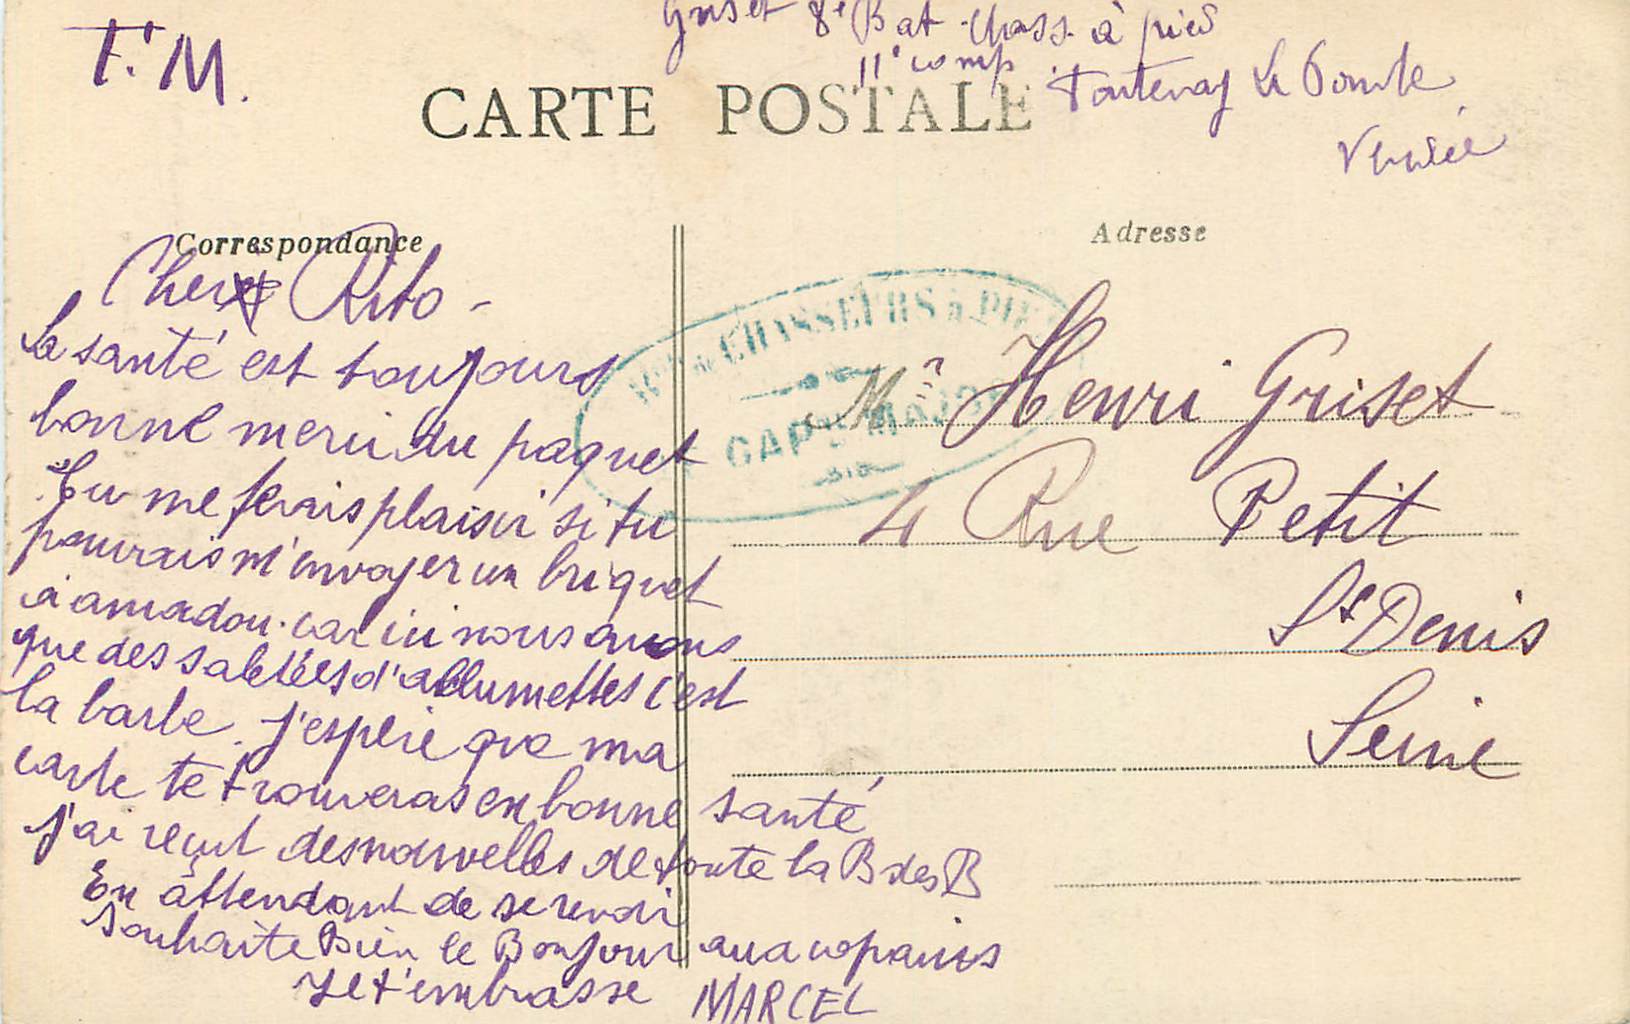 F. M.
Griset 8e Bat. Chass. à pied
11e comp. Fontenay le Comte
Vendée
CARTE POSTALE
Correspondance
Adresse
Cher Rito -
la santé est toujours
bonne merci du paquet
Tu me ferais plaisir si tu
pourrais m'envoyer un briquet
à amadou. car ici nous avons
que des saletées d'allumettes c'est
la barbe. J'espère que ma
carte te trouveras en bonne santé
J'ai reçut des nouvelles de toute la B des B
En attendant de se revoir
Souhaite Bien le Bonjour aux copains
Je t'embrasse MARCEL
CHASSEURS à PIED
CAPne MAJOR
Mr Henri Griset
4 Rue Petit
St Denis
Seine